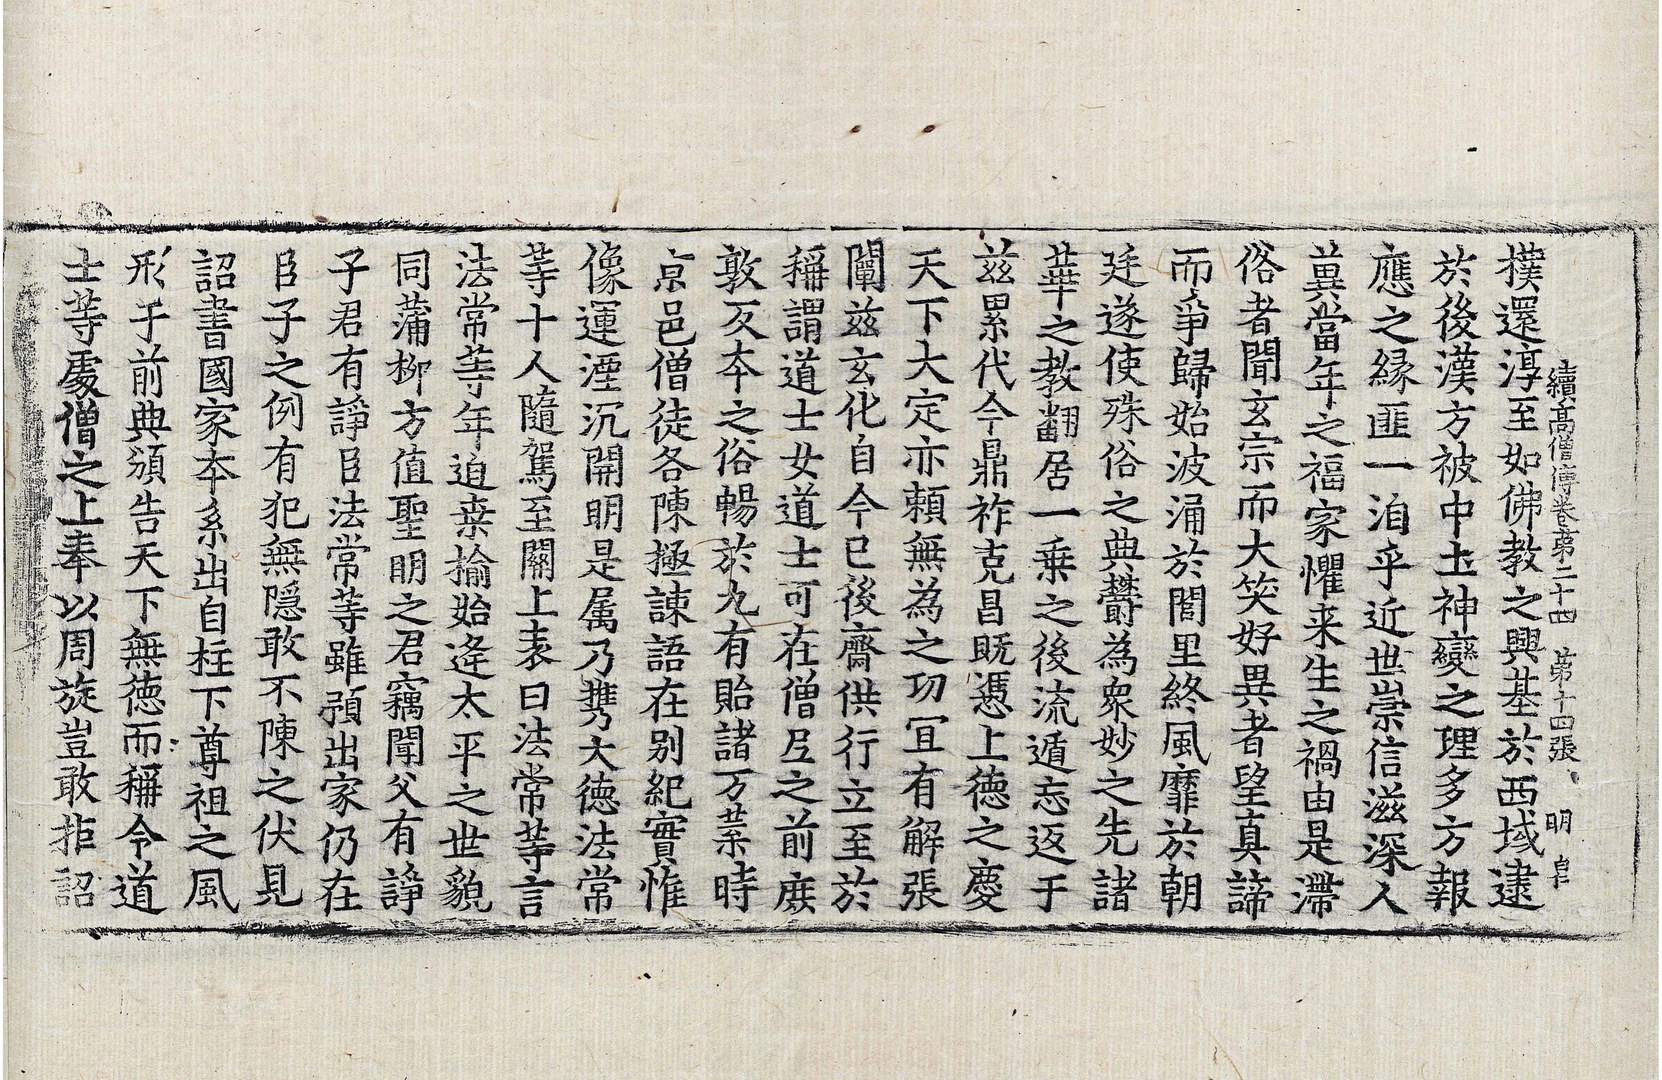 續高僧傳卷第二十四 第十四張 明皐
樸還淳至如佛教之興基於西域逮
於後漢方被中土神變之理多方報
應之縁匪一洎乎近世崇信滋深人
兾當年之福家懼来生之禍由是滯
俗者聞玄宗而大笑好異者望真諦
而爭歸始波涌於閭里終風靡於朝
廷遂使殊俗之典欝為衆妙之先諸
華之教翻居一乗之後流遁忘返于
兹累代今鼎祚克昌既憑上德之慶
天下大定亦頼無為之功冝有解張
闡兹玄化自今已後齋供行立至於
稱謂道士女道士可在僧尼之前庶
敦反夲之俗暢於九有貽諸万葉時
京邑僧徒各陳極諫語在别紀實惟
像運湮沉開明是属乃携大德法常
等十人隨駕至關上表曰法常等言
法常等年迫桒榆始逢太平之世貌
同蒲柳方值聖明之君竊聞父有諍
子君有諍臣法常等雖預出家仍在
臣子之例有犯無隠敢不陳之伏見
詔書國家夲系出自柱下尊祖之風
形于前典頒告天下無徳而稱令道
士等處僧之上奉以周旋豈敢拒詔